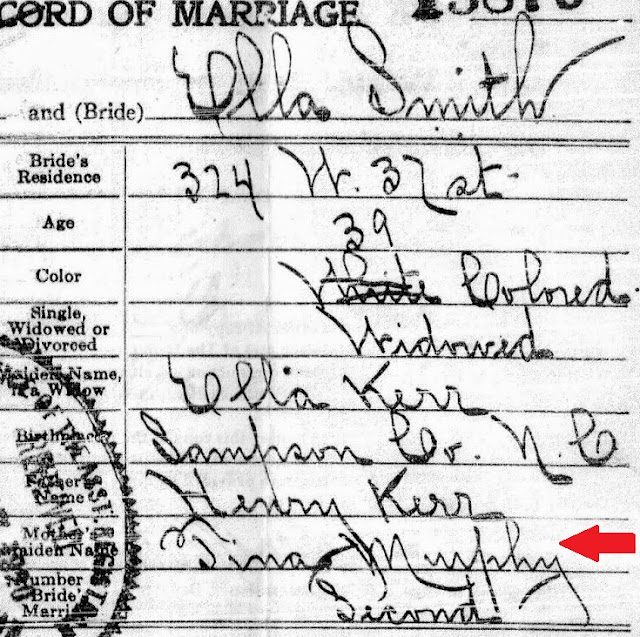 CORD OF MARRIAGE 13870
and (Bride) Ella Smith
Bride's Residence 324 W. 37 st.
Age 39
Color White Colored.
Single, Widowed or Divorced Widowed
Maiden Name, if a Widow Ella Kerr
Birthplace Sampson Co. N. C
Father's Name Henry Kerr
Mother's Maiden Name Tina Murphy
Number Bride's Marriage Second